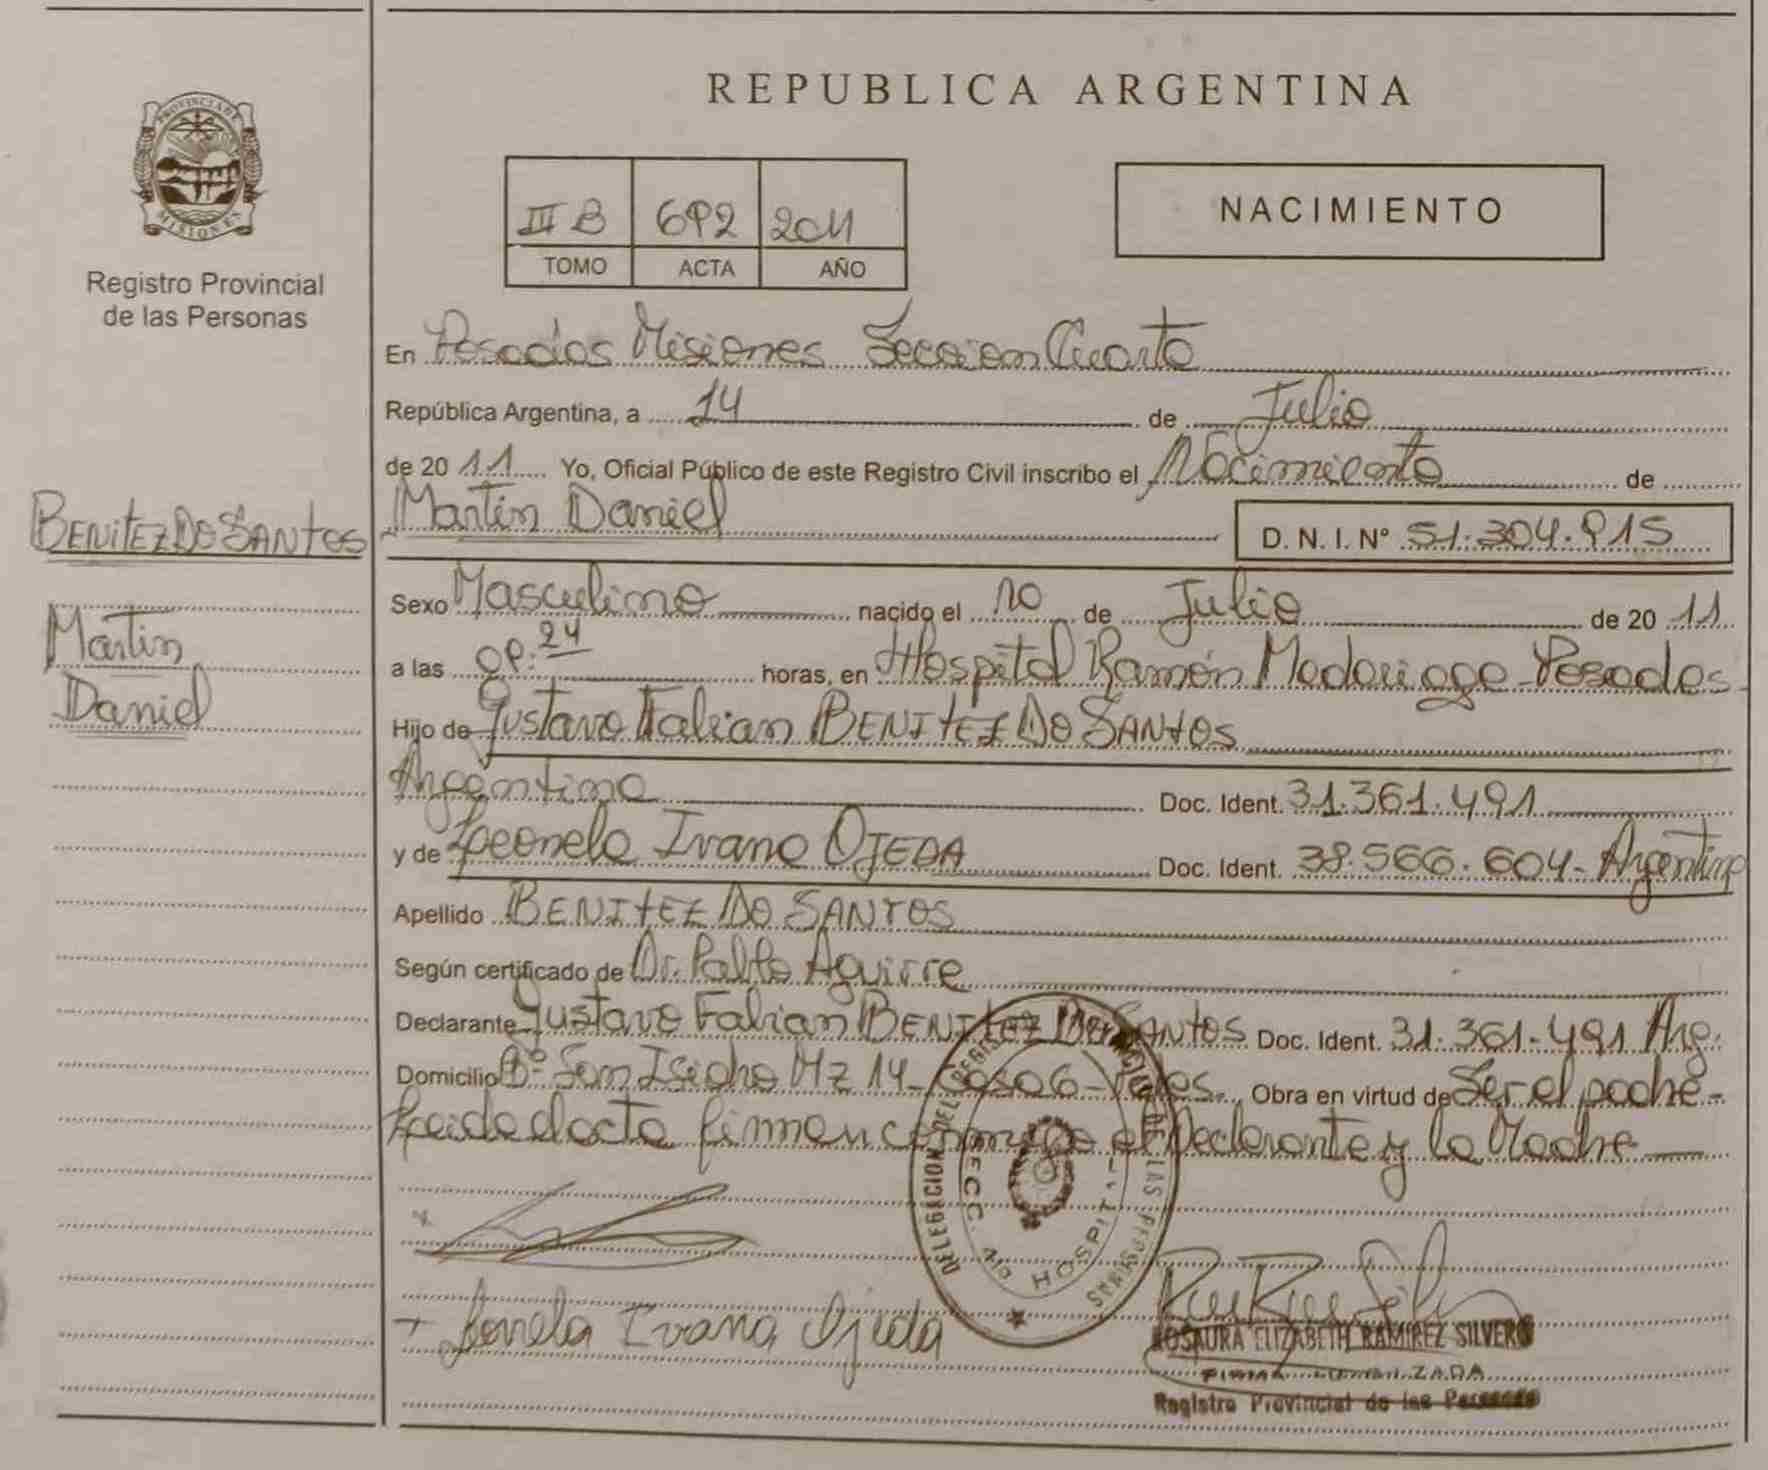 REPUBLICA ARGENTINA
PROVINCIA DE
MISIONES
Registro Provincial
de las Personas
III B 692 2011
TOMO ACTA AÑO
NACIMIENTO
En Posadas Misiones Seccion Cuarta
República Argentina, a 14 de Julio
de 2011 Yo, Oficial Público de este Registro Civil inscribo el Nacimiento de
BENITEZ DO SANTOS
Martin Daniel
D. N. I. N° 51.304.915
Martin
Daniel
Sexo Masculino nacido el 10 de Julio de 2011
a las 09:24 horas, en Hospital Ramón Madariaga Posadas
Hijo de Gustavo Fabian BENITEZ DO SANTOS
Argentino Doc. Ident. 31.361.491
y de Leonela Ivana OJEDA Doc. Ident. 38.566.604- Argentina
Apellido BENITEZ DO SANTOS
Según certificado de Dr. Pablo Aguirre
Declarante Gustavo Fabian BENITEZ DO SANTOS Doc. Ident. 31.361.491 Arg.
Domicilio B° San Isidro Mz 14- Casa 6- Obra en virtud de Ser el padre-
Leida el acta firman conmigo el Declarante y la Madre
DELEGACION DEL REGISTRO PROVINCIAL DE LAS PERSONAS
SECC. 4ta HOSPITAL
Leonela Ivana Ojeda
ROSAURA ELIZABETH RAMIREZ SILVERO
FIRMA AUTORIZADA
Registro Provincial de las Personas